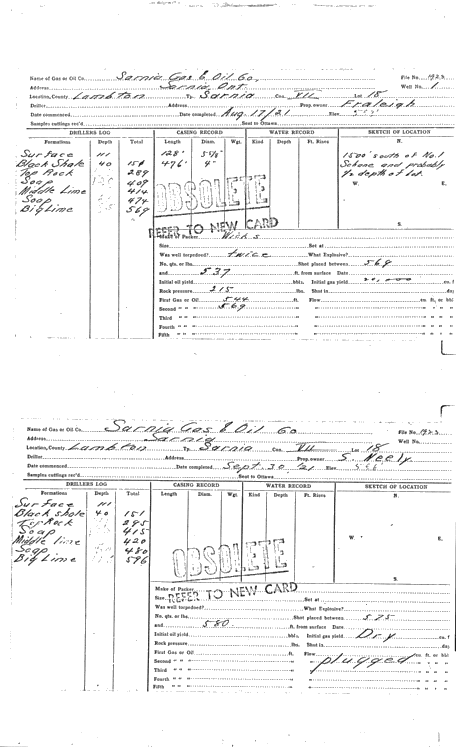 Name of Gas or Oil Co. Sarnia Gas & Oil Co. File No. 1923
Address Sarnia Ont. Well No. 1
Location, County Lambton Tp. Sarnia Con. VII Lot 18
Driller Address Prop. owner Fraleigh
Date commenced Date completed Aug. 17/21 Elev.
Samples cuttings rec'd Sent to Ottawa
DRILLERS LOG CASING RECORD WATER RECORD SKETCH OF LOCATION
Formations Depth Total Length Diam. Wgt. Kind Depth Ft. Rises N.
Surface 111 128' 5 5/8"
Black Shale 40 151 496' 4"
Top Rock 289
Soap 409
Middle Lime 414
Soap 474
Big Lime 569
1500' south of No. 1
W. E.
S.
OBSOLETE
REFER TO NEW CARD
Make of Packer Wicks
Size Set at
Was well torpedoed? twice What Explosive?
No. qts. or lbs. Shot placed between 569
and 537 ft. from surface Date
Initial oil yield bbls. Initial gas yield 20,000 cu. f
Rock pressure 215 lbs. Shut in day
First Gas or Oil 544 ft. Flow cu. ft. or bbl
Second " " 569
Third " "
Fourth " "
Fifth " "
Name of Gas or Oil Co. Sarnia Gas & Oil Co File No. 1923
Address Sarnia Well No.
Location, County Lambton Tp. Sarnia Con. VII Lot 18
Driller Address Prop. owner S. Neely
Date commenced Date completed Sept. 30 '21 Elev.
Samples cuttings rec'd Sent to Ottawa
DRILLERS LOG CASING RECORD WATER RECORD SKETCH OF LOCATION
Formations Depth Total Length Diam. Wgt. Kind Depth Ft. Rises N.
Surface 111
Black shale 40 151
Top Rock 295
Soap 415
Middle lime 420
Soap 480
Big Lime 596
W E.
S.
OBSOLETE
REFER TO NEW CARD
Make of Packer
Size Set at
Was well torpedoed? What Explosive?
No. qts. or lbs. Shot placed between 575
and 580 ft. from surface Date
Initial oil yield bbls. Initial gas yield Dry cu. f
Rock pressure lbs. Shut in day
First Gas or Oil ft. Flow cu. ft. or bbl
Second " " plugged
Third " "
Fourth " "
Fifth " "